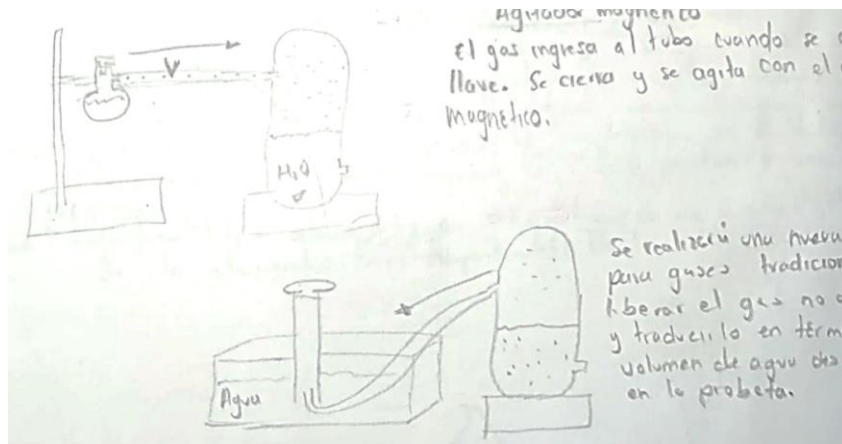 Agitador magnético
el gas ingresa al tubo cuando se
llave. Se cierra y se agita con el
magnético.
H₂O
Se realizará una nueva
para gases
liberar el gas no
y traducirlo en
volumen de agua
en la probeta.
Agua